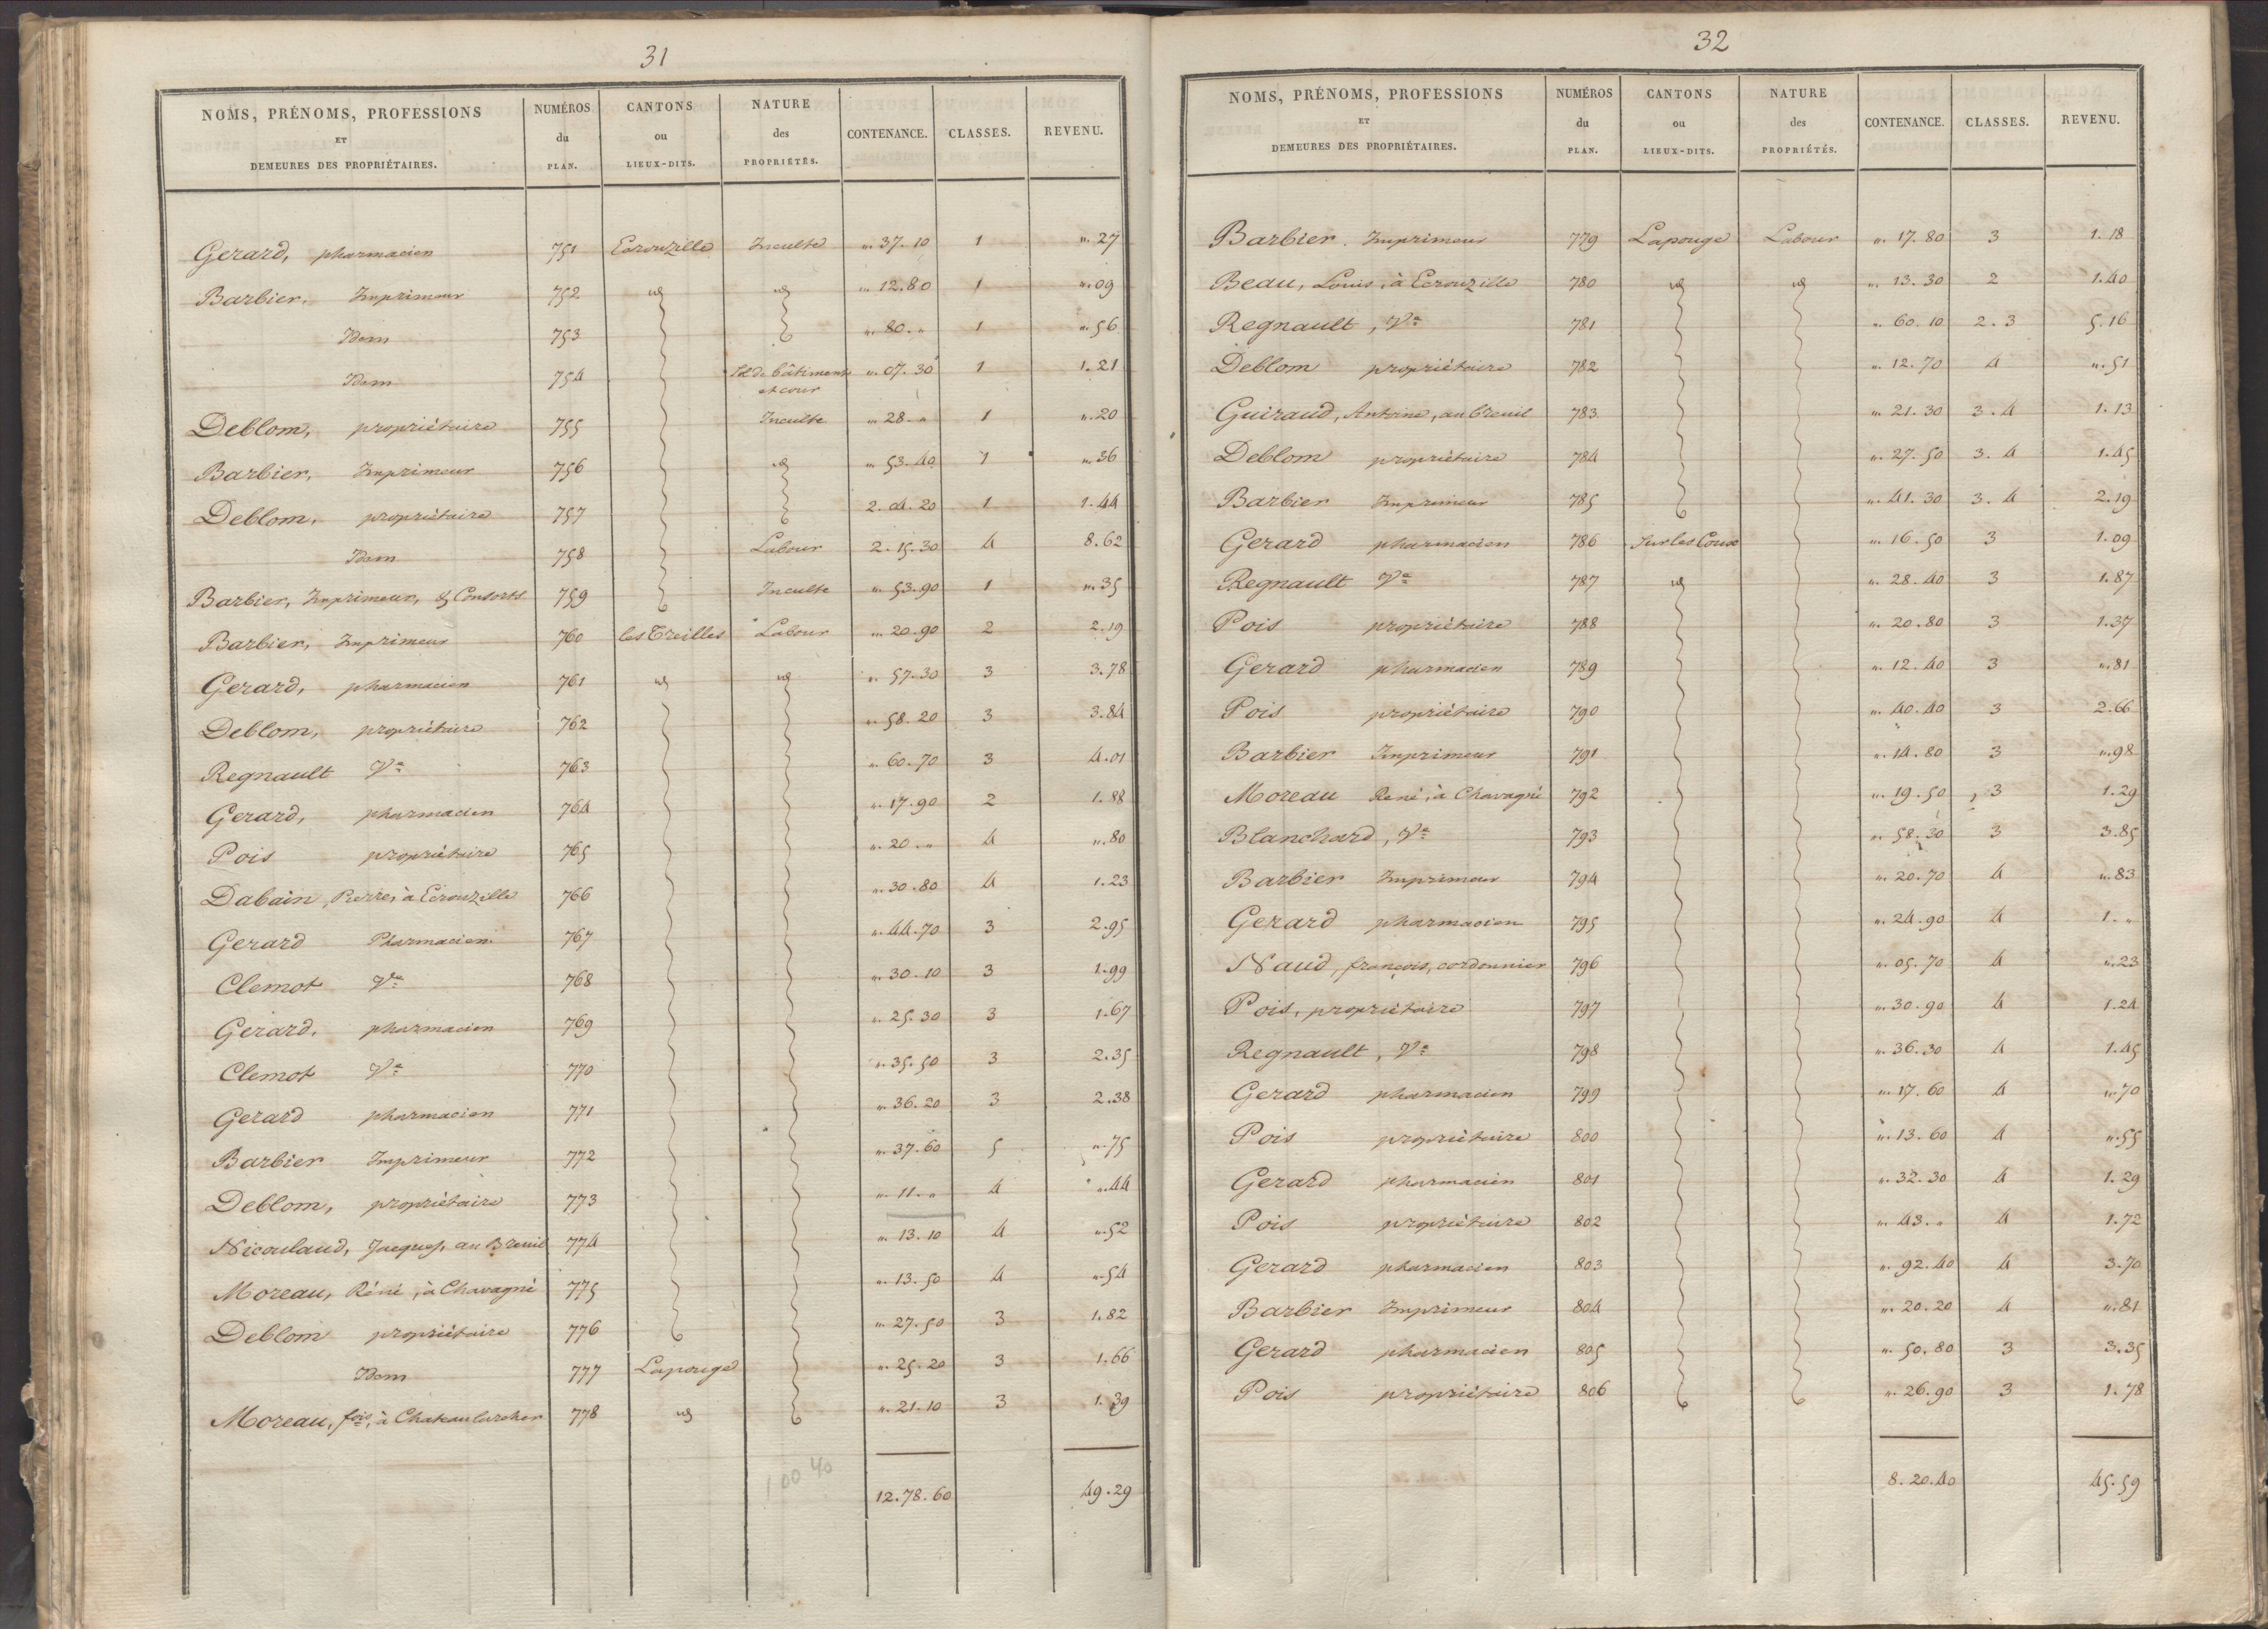 31
NOMS, PRÉNOMS, PROFESSIONS ET DEMEURES DES PROPRIÉTAIRES. NUMÉROS du PLAN. CANTONS ou LIEUX-DITS. NATURE des PROPRIÉTÉS. CONTENANCE. CLASSES. REVENU.
Gerard, pharmacien 751 Ecrouzille Inculte „. 37. 10 1 „. 27
Barbier, Imprimeur 752 id id „. 12. 80 1 „. 09
Idem 753 „. 80. „ 1 „. 56
Idem 754 Sol de bâtiments et cour „. 07. 30 1 1. 21
Deblom, propriétaire 755 Inculte „. 28. „ 1 „. 20
Barbier, Imprimeur 756 id „. 53. 40 1 „. 36
Deblom, propriétaire 757 2. 04. 20 1 1. 44
Idem 758 Labour 2. 15. 30 4 8. 62
Barbier, Imprimeur, & Consorts 759 Inculte „. 53. 90 1 „. 35
Barbier, Imprimeur 760 les Treilles Labour „. 20. 90 2 2. 19
Gerard, pharmacien 761 id id „. 57. 30 3 3. 78
Deblom, propriétaire 762 „. 58. 20 3 3. 84
Regnault Ve 763 „. 60. 70 3 4. 01
Gerard, pharmacien 764 „. 17. 90 2 1. 88
Pois propriétaire 765 „. 20. „ 4 „. 80
Dabain, Pierre, à Ecrouzille 766 „. 30. 80 4 1. 23
Gerard Pharmacien 767 „. 44. 70 3 2. 95
Clemot Ve 768 „. 30. 10 3 1. 99
Gerard, pharmacien 769 „. 25. 30 3 1. 67
Clemot Ve 770 „. 35. 50 3 2. 35
Gerard pharmacien 771 „. 36. 20 3 2. 38
Barbier Imprimeur 772 „. 37. 60 5 „. 75
Deblom, propriétaire 773 „. 11. „ 4 „. 44
Nicoulaud, Jacques, au Breuil 774 „. 13. 10 4 „. 52
Moreau, Réné, à Chavagné 775 „. 13. 50 4 „. 54
Deblom propriétaire 776 „. 27. 50 3 1. 82
Idem 777 Lapouge „. 25. 20 3 1. 66
Moreau, fois, à Chateaularcher 778 id „. 21. 10 3 1. 39
100 40
12. 78. 60 49. 29
32
NOMS, PRÉNOMS, PROFESSIONS ET DEMEURES DES PROPRIÉTAIRES. NUMÉROS du PLAN. CANTONS ou LIEUX-DITS. NATURE des PROPRIÉTÉS. CONTENANCE. CLASSES. REVENU.
Barbier. Imprimeur 779 Lapouge Labour „. 17. 80 3 1. 18
Beau, Louis, à Ecrouzille 780 id id „. 13. 30 2 1. 40
Regnault, Ve 781 „. 60. 10 2. 3 5. 16
Deblom propriétaire 782 „. 12. 70 4 „. 51
Guiraud, Antoine, au breuil 783 „. 21. 30 3. 4 1. 13
Deblom propriétaire 784 „. 27. 50 3. 4 1. 45
Barbier Imprimeur 785 „. 41. 30 3. 4 2. 19
Gerard pharmacien 786 Sur les Coux „. 16. 50 3 1. 09
Regnault Ve 787 id „. 28. 40 3 1. 87
Pois propriétaire 788 „. 20. 80 3 1. 37
Gerard pharmacien 789 „. 12. 40 3 „. 81
Pois propriétaire 790 „. 40. 40 3 2. 66
Barbier Imprimeur 791 „. 14. 80 3 „. 98
Moreau René, à Chavagné 792 „. 19. 50 3 1. 29
Blanchard, Ve 793 „. 58. 30 3 3. 85
Barbier Imprimeur 794 „. 20. 70 4 „. 83
Gerard pharmacien 795 „. 24. 90 4 1. „
Naud, françois, cordonnier 796 „. 05. 70 4 „. 23
Pois, propriétaire 797 „. 30. 90 4 1. 24
Regnault, Ve 798 „. 36. 30 4 1. 45
Gerard pharmacien 799 „. 17. 60 4 „. 70
Pois propriétaire 800 „. 13. 60 4 „. 55
Gerard pharmacien 801 „. 32. 30 4 1. 29
Pois propriétaire 802 „. 43. „ 4 1. 72
Gerard pharmacien 803 „. 92. 40 4 3. 70
Barbier Imprimeur 804 „. 20. 20 4 „. 81
Gerard pharmacien 805 „. 50. 80 3 3. 35
Pois propriétaire 806 „. 26. 90 3 1. 78
8. 20. 40 45. 59